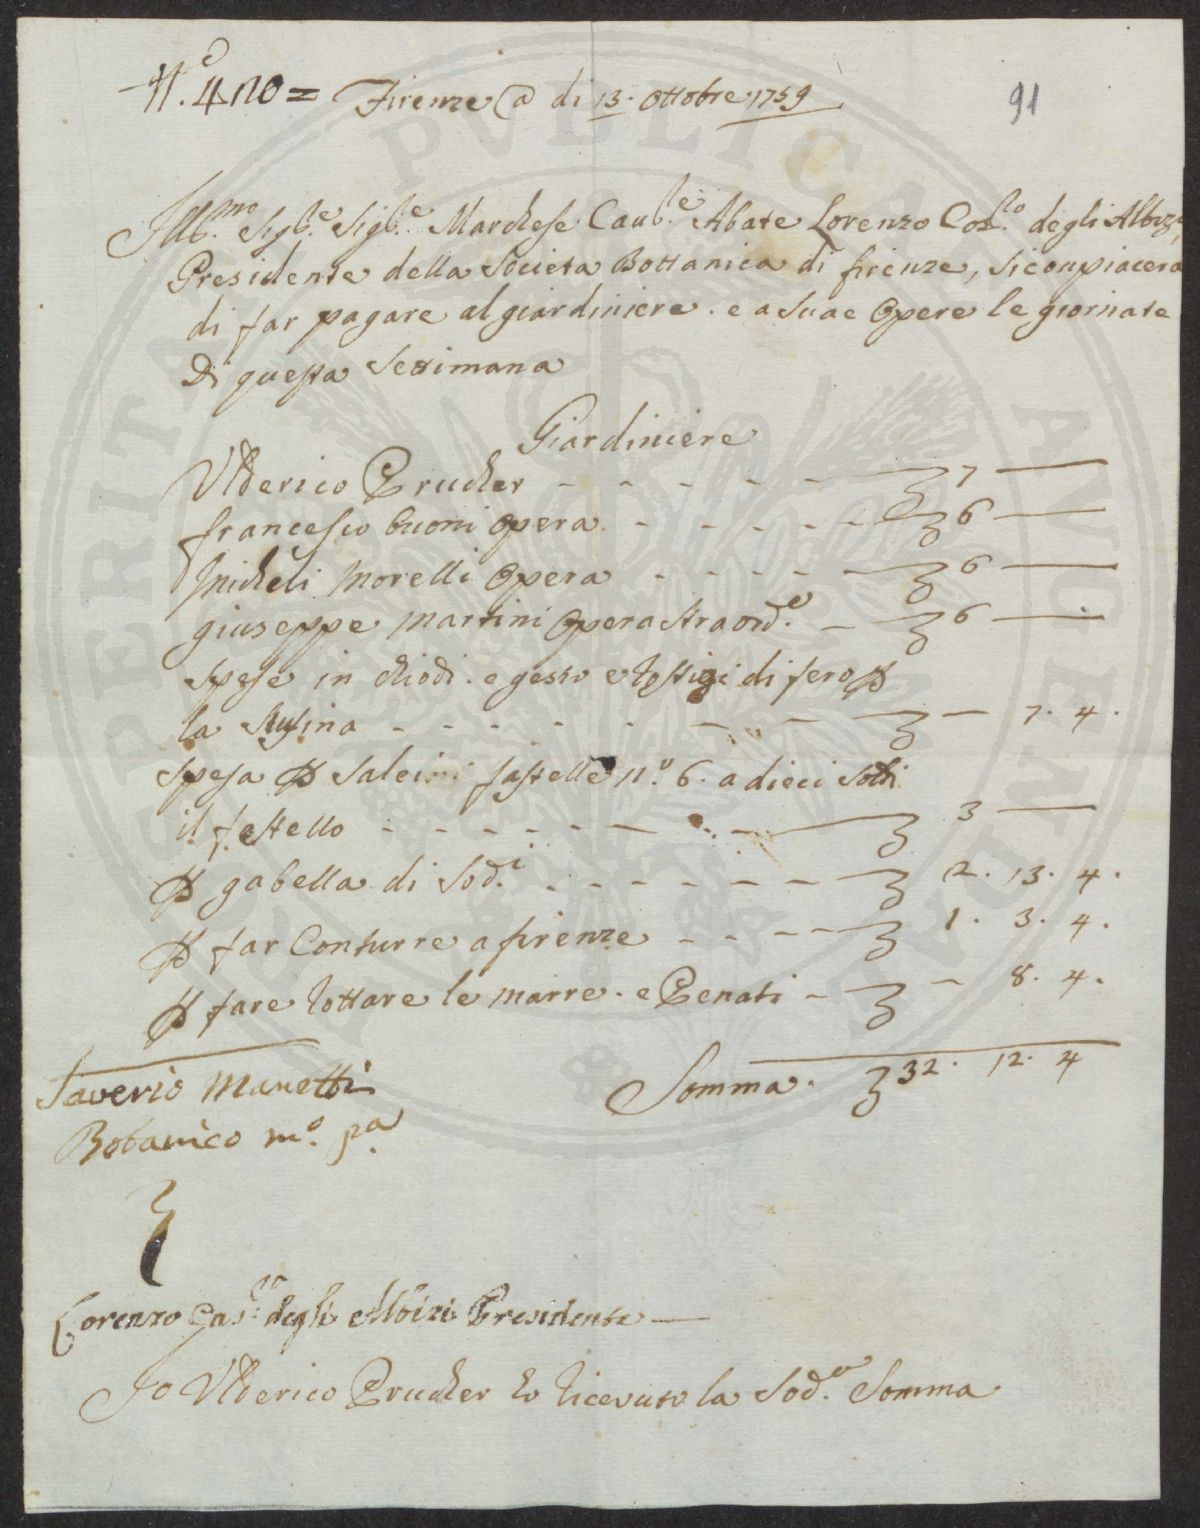 N.o 420 = Firenze @ di 13. Ottobre 1759
91
Ill.mo Sigl.e Sigl.e Marchese Caul.e Abate Lorenzo degli Albizi,
Presidente della Societa Bottanica di firenze, si conpiacera
di far pagare al giardiniere. e a Suae Opere le giornate
Di questa Settimana
Giardiniere
Vlderico Prucher - - - - - 7 —
francescio buoni opera. - - - - - 6 —
Micheli Morelli Opera - - - - - 6 —
giuseppe Martini Opera straord.a - 6 —
Spese in chiodi. e gesso e di fero p
la Stufina - - - - - - - - — 7. 4.
Spesa p Saleioni fastelle n.o 6. a dieci Soldi
il festello - - - - - - - 3 —
p gabella di Sod.i - - - - - - 2. 13. 4.
p far Conturre a firenze - - - - 1. 3. 4.
p fare le marre. e Penati - — 8. 4.
Somma. 32. 12. 4
Saverio Manetti
Botanico m.o p.a
Lorenzo Gas.ro degli Albizi Presidente —
Io Vlderico Prucher ho riceuuto la Sod.a Somma
PERITA
PVBLICA